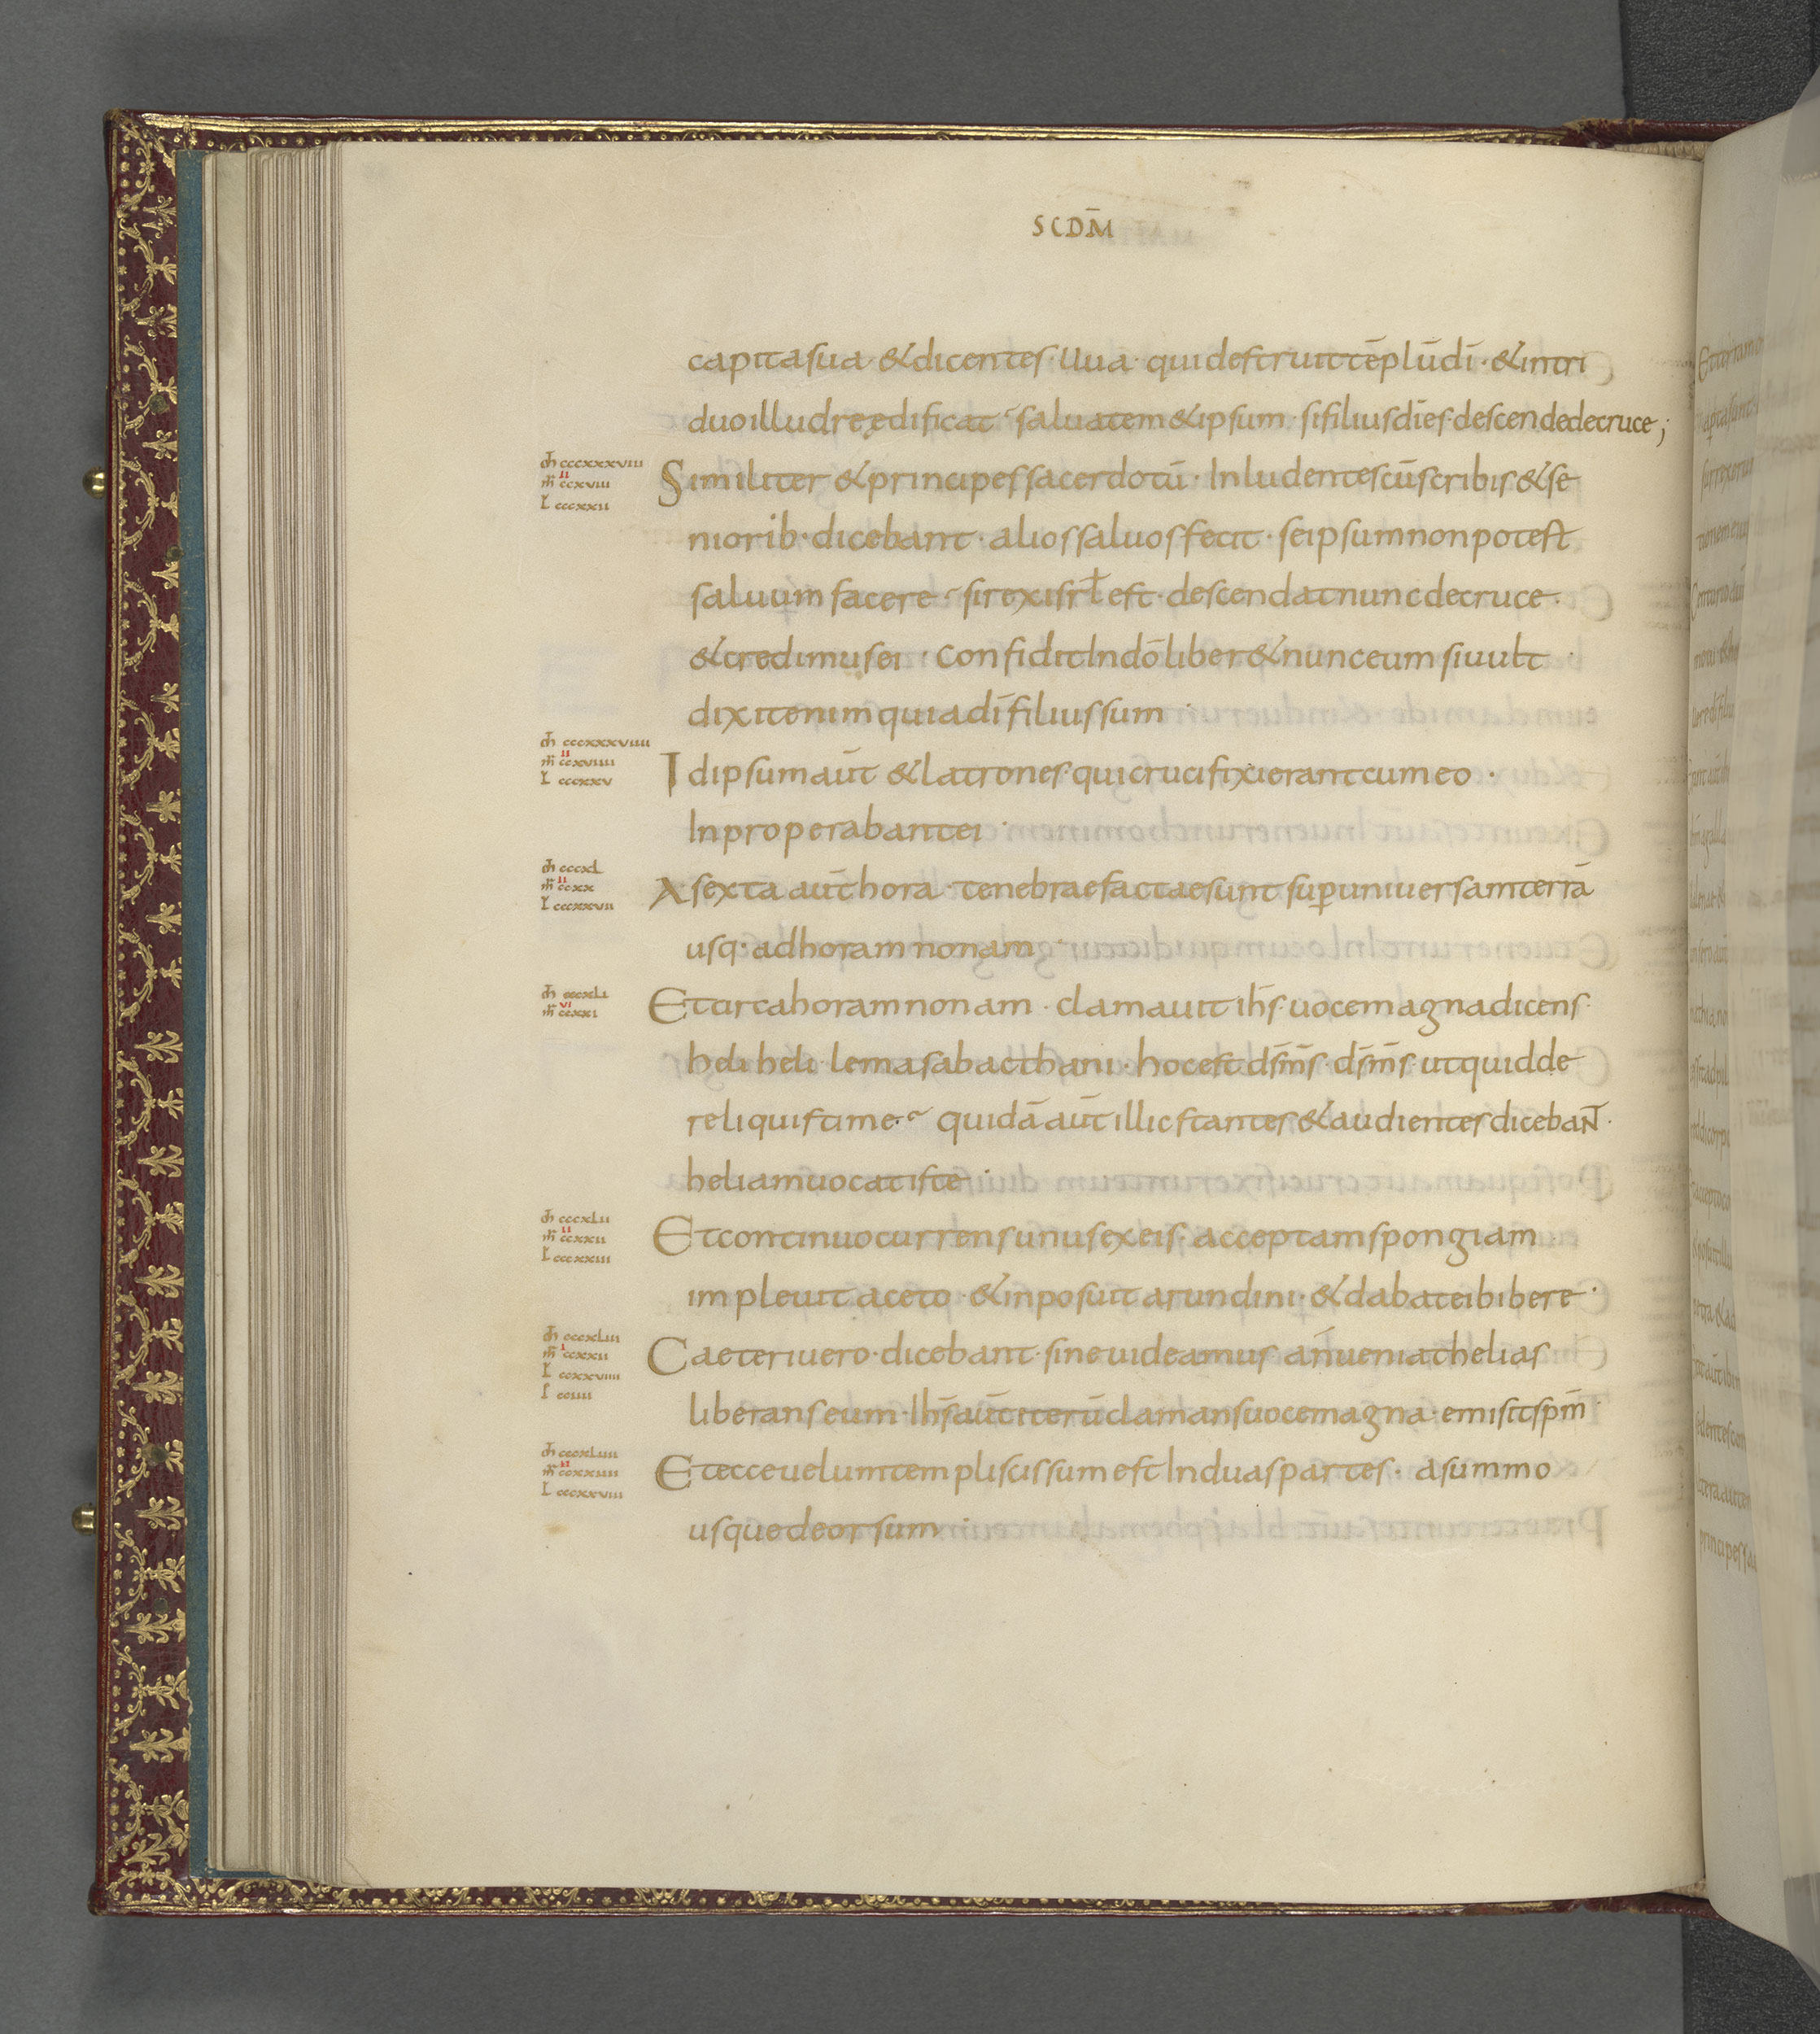 SCDM̄
capita sua · & dicentes · Uua · qui destruit tēplū dī · & in tri
duo illud reędificat · salua tem & ipsum · si filius dī es · descende de cruce ;
m̄h cccxxxviii
m̄r ccxviii
ii
L cccxxii
Similiter & principes sacerdotū · Inludentes cū scribis & se
niorib · dicebant · alios saluos fecit · seipsum non potest
saluum facere · si rex isrl̄ est · descendat nunc de cruce ·
& credimus ei · Confidit In dō liber& nunc eum si uult ·
dixit enim quia dī filius sum ·
m̄h cccxxxviiii
m̄r ccxviiii
ii
L cccxxv
Idipsum aūt & latrones qui crucifixi erant cum eo ·
Inproperabant ei ·
m̄h cccxl
m̄r ccxx
ii
L cccxxvii
A sexta aūt hora · tenebrae factae sunt sup̱ uniuersam terrā
usq· ad horam nonam ·
m̄h cccxli
m̄r ccxxi
vi
Et circa horam nonam · clamauit ih̄s · uoce magna dicens ·
heli heli · lema sabacthani · hoc est ds̄ ms̄ · ds̄ ms̄ · ut quid de
reliquisti me · quidā aūt illic stantes & audientes diceban̄t ·
heliam uocat iste ·
m̄h cccxlii
m̄r ccxxii
ii
L cccxxiii
Et continuo currens unus ex eis · acceptam spongiam
impleuit aceto · & inposuit arundini · & dabat ei bibere ·
m̄h cccxliii
m̄r ccxxii
i
L ccxxviiii
I cciiii
Caeteri uero · dicebant · sine uideamus an ueniat helias
liberans eum · Ih̄s aūt iterū clamans uoce magna · emisit spm̄ ·
m̄h cccxliiii
m̄r ccxxiiii
ii
L cccxxviii
Et ecce uelum templi scissum est In duas partes · a summo
usque deorsum ·